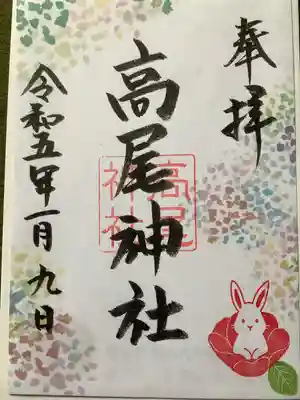 奉拝
高尾神社
高尾神社
令和五年一月九日